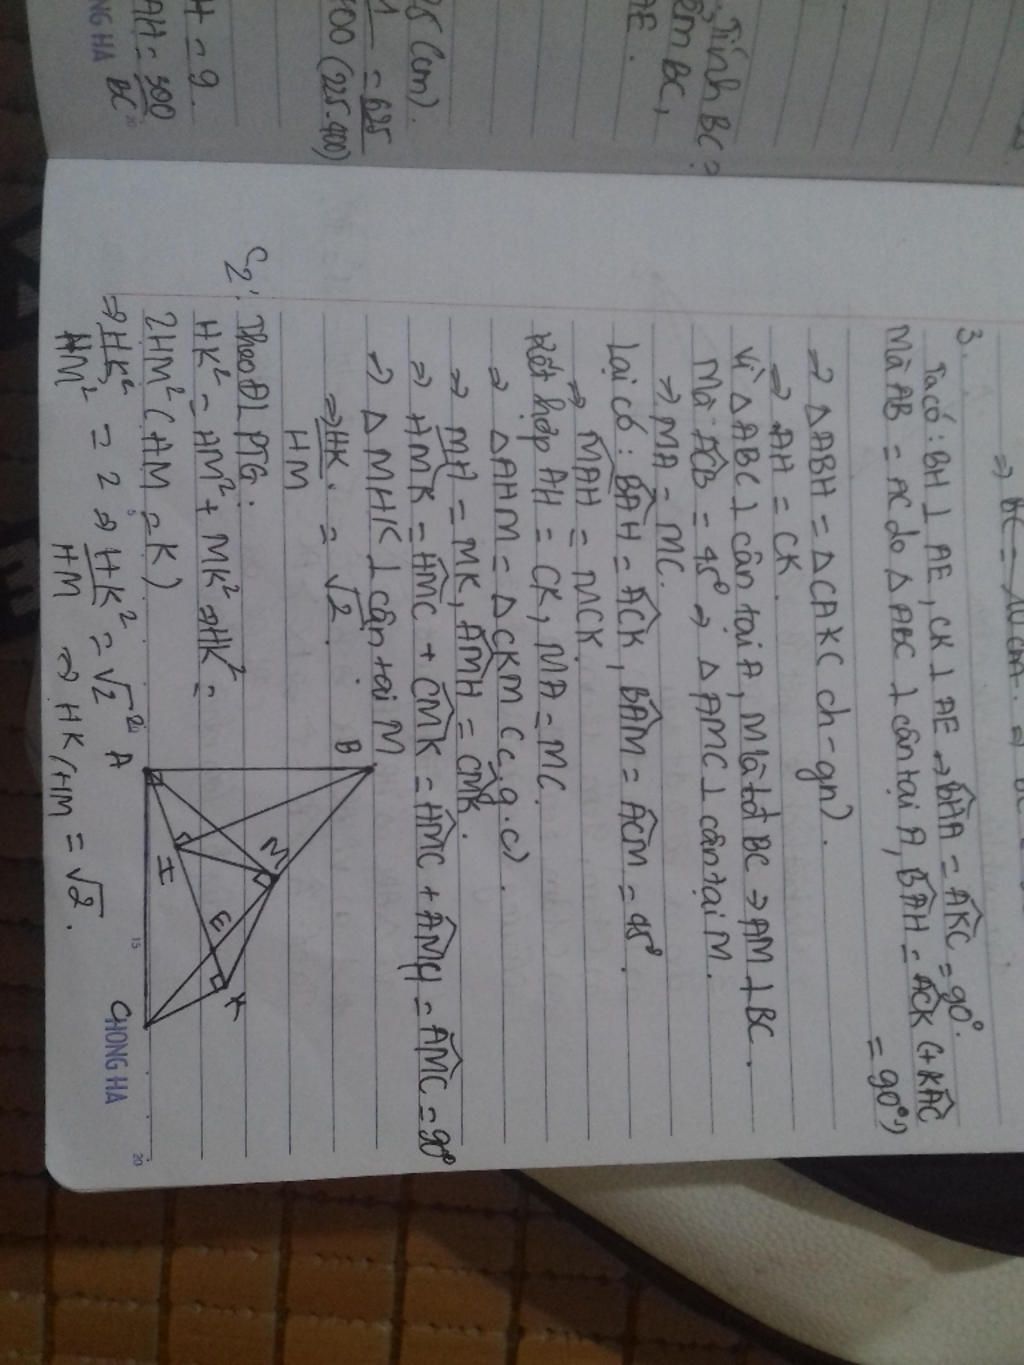 ⇒ BC =
3.
Ta có: BH ⊥ AE, CK ⊥ AE ⇒ BHA = AKC = 90°.
Mà AB = AC do △ABC ⊥ cân tại A, BAH = ACK (+KAC
= 90°)
⇒ △ABH = △CAK (ch-gn).
⇒ AH = CK.
Vì △ABC ⊥ cân tại A, M là tđ BC ⇒ AM ⊥ BC.
Mà ACB = 45° ⇒ △AMC ⊥ cân tại M.
⇒ MA = MC.
Lại có: BAH = ACK, BAM = ACM = 45°.
⇒ MAH = MCK.
Kết hợp AH = CK, MA = MC.
⇒ △AHM = △CKM (c.g.c).
⇒ MH = MK, AMH = CMK.
⇒ HMK = HMC + CMK = HMC + AMH = AMC = 90°
⇒ △MHK ⊥ cân tại M
⇒ HK = √2.
HM
C2: Theo ĐL PTG:
HK² = HM² + MK² ⇒ HK² =
2HM² (HM = K)
⇒ HK² = 2 ⇒ HK² = √2²
HM² HM ⇒ HK/HM = √2.
B
M
E
K
H
A
C
CHONG HA
5
15
20
Tính BC?
BC,
AE.
25 (cm).
= 625
(225.400)
H = 9.
AH = 300
BC
NG HA
20